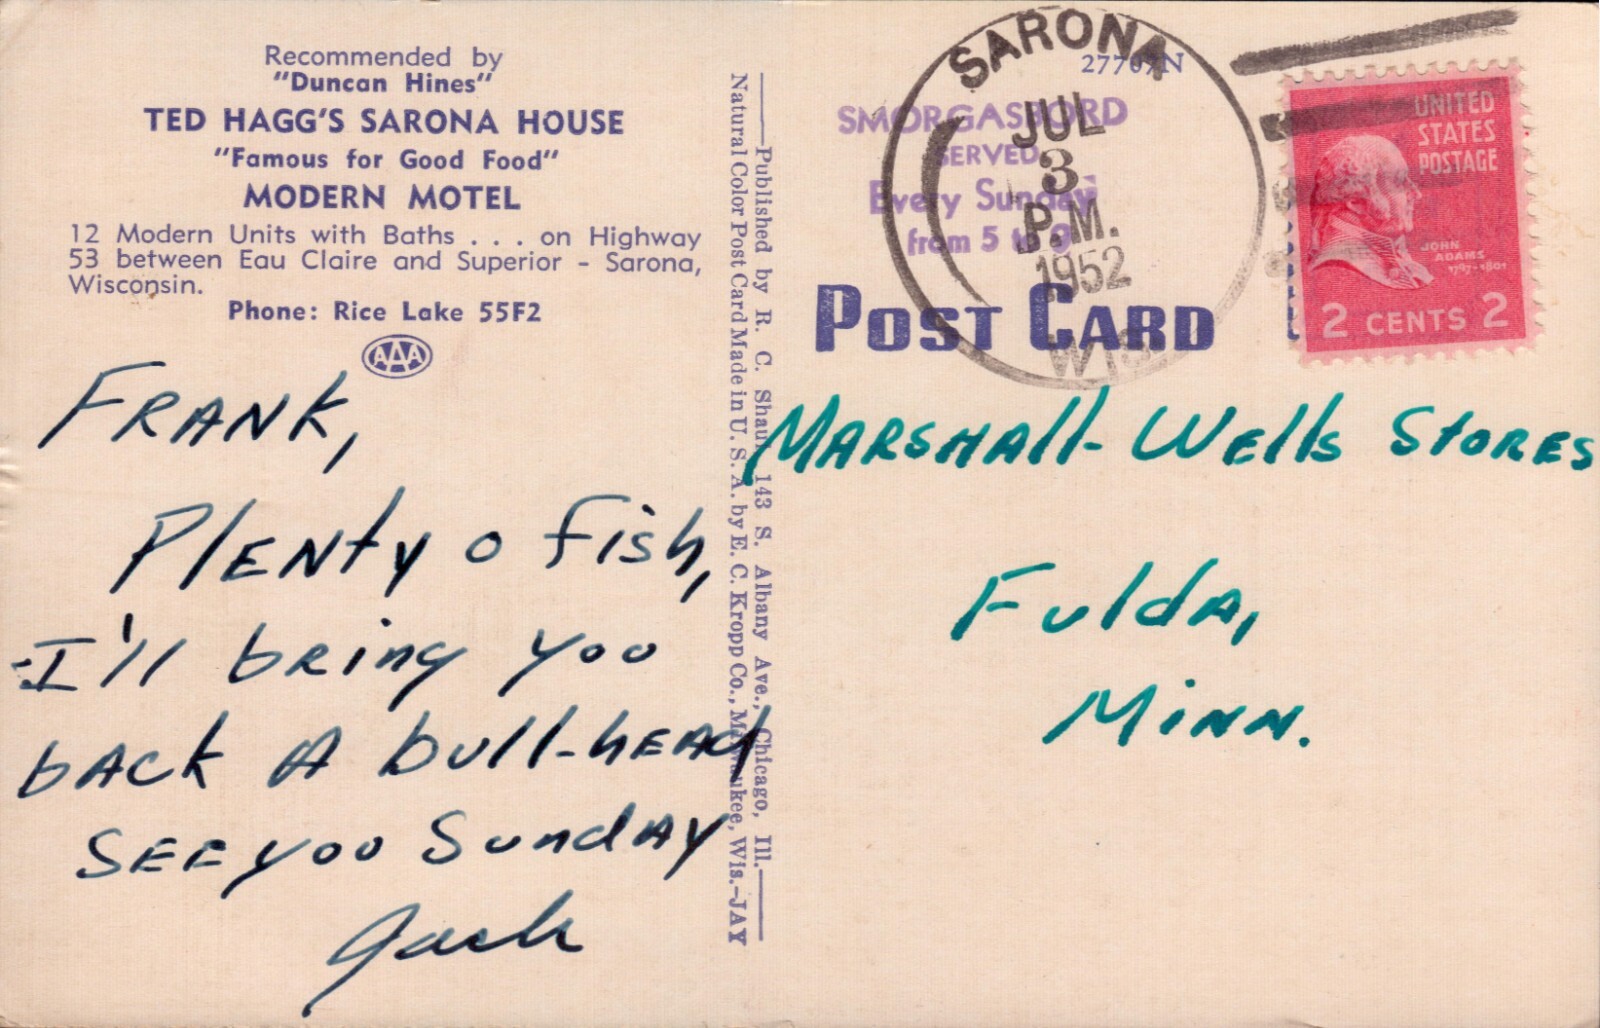 Recommended by
"Duncan Hines"
TED HAGG'S SARONA HOUSE
"Famous for Good Food"
MODERN MOTEL
12 Modern Units with Baths . . . on Highway
53 between Eau Claire and Superior - Sarona,
Wisconsin.
Phone: Rice Lake 55F2
AAA
FRANK,
Plenty o fish,
I'll bring you
back A bull-head
SEE you Sunday
Jack
Published by R. C. Shaul 143 S. Albany Ave., Chicago, Ill.
Natural Color Post Card Made in U. S. A. by E. C. Kropp Co., Milwaukee, Wis.-JAY
SARONA
JUL
3
P.M.
1952
WIS.
SMORGASBORD
SERVED
Every Sunday
from 5 to 9
POST CARD
UNITED
STATES
POSTAGE
JOHN
ADAMS
1797-1801
2 CENTS 2
MARSHAll-Wells Stores
Fulda,
Minn.